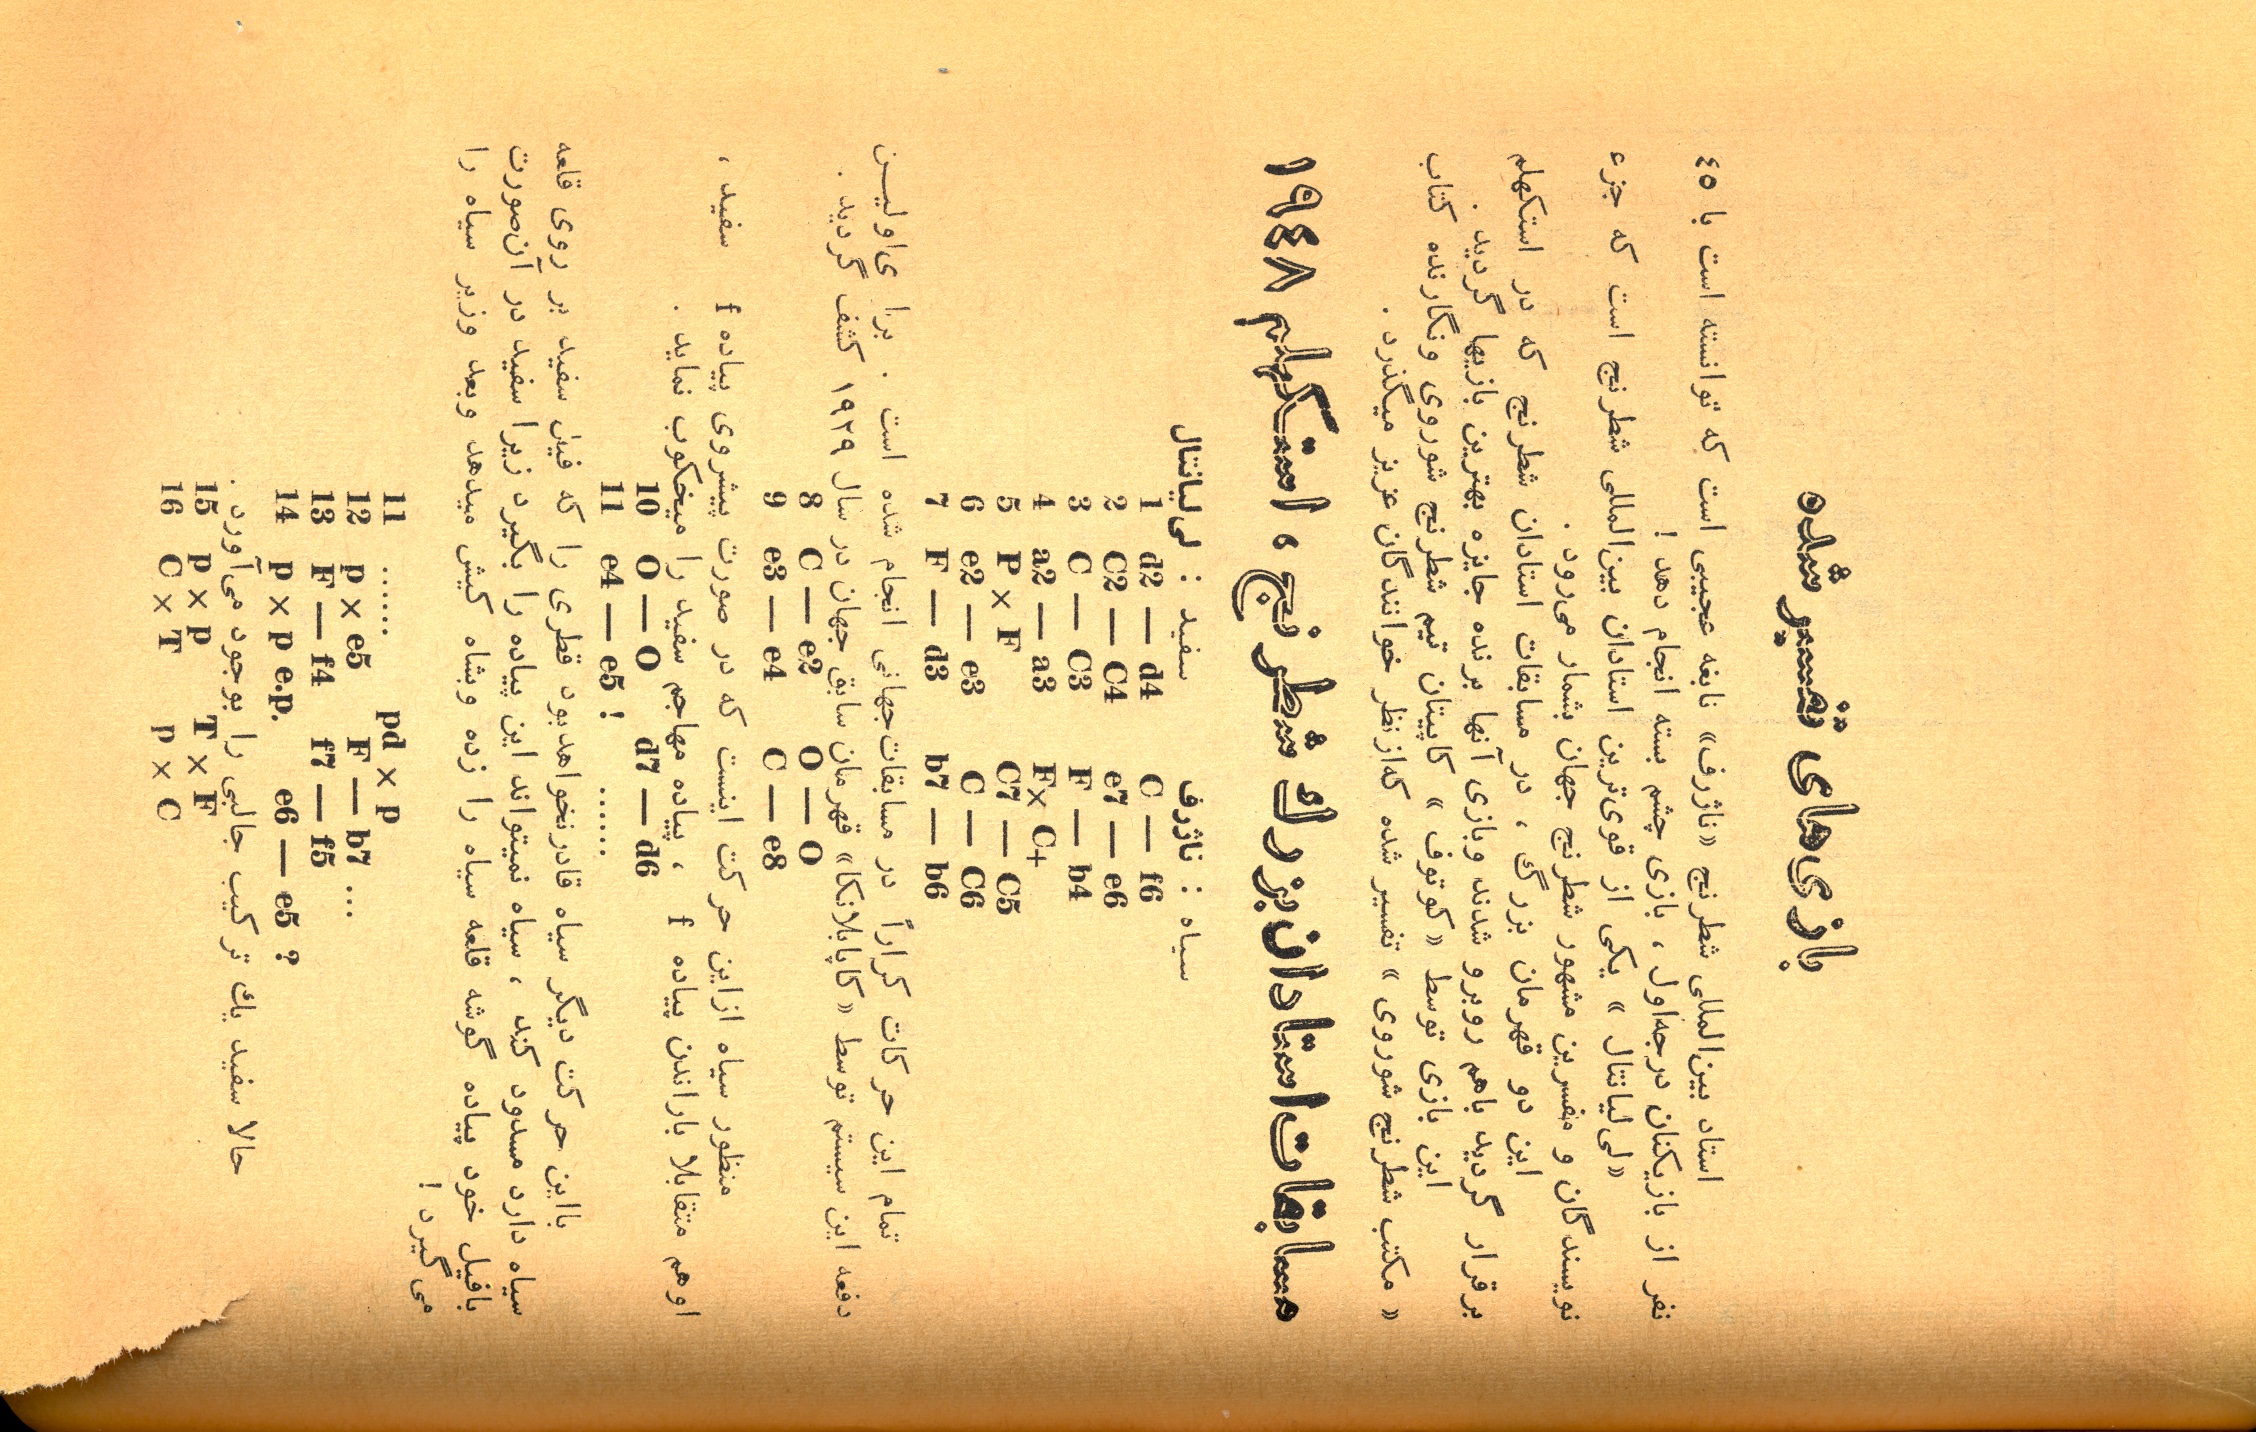 بازی‌های تفسیر شده
استاد بین‌المللی شطرنج «ناژرف» نابغه عجیبی است که توانسته است با ٤٥
نفر از بازیکنان درجه‌اول ، بازی چشم بسته انجام دهد !
«لی‌لیانتال » یکی از قوی‌ترین استادان بین‌المللی شطرنج است که جزء
نویسندگان و مفسرین مشهور شطرنج جهان بشمار می‌رود .
این دو قهرمان بزرگ ، در مسابقات استادان شطرنج که در استکهلم
برقرار گردید باهم روبرو شدند وبازی آنها برنده جایزه بهترین بازیها گردید .
این بازی توسط « کوتوف » کاپیتان تیم شطرنج شوروی ونگارنده کتاب
« مکتب شطرنج شوروی » تفسیر شده که‌ازنظر خوانندگان عزیز میگذرد .
مسابقات استادان بزرك شطرنج ، استکهلم ١٩٤٨
سفید : لی‌لیانتال سیاه : ناژرف
1 d2 — d4 C — f6
2 C2 — C4 e7 — e6
3 C — C3 F — b4
4 a2 — a3 F× C+
5 P × F C7 — C5
6 e2 — e3 C — C6
7 F — d3 b7 — b6
تمام این حرکات کراراً در مسابقات‌جهانی انجام شده است . برا ی‌اولیـن
دفعه این سیستم توسط « کاپابلانکا» قهرمان سابق جهان در سال ١٩٢٩ کشف گردید .
8 C — e2 O — O
9 e3 — e4 C — e8
منظور سیاه ازاین حرکت اینست که در صورت پیشروی پیاده f سفید ،
اوهم متقابلا باراندن پیاده f ، پیاده مهاجم سفید را میخکوب نماید .
10 O — O d7 — d6
11 e4 — e5 ! ......
بااین حرکت دیگر سیاه قادرنخواهدبود قطری را که فیل سفید بر روی قلعه
سیاه دارد مسدود کند ، سیاه نمیتواند این پیاده را بگیرد زیرا سفید در آن‌صورت
بافیل خود پیاده گوشه قلعه سیاه را زده وبشاه کیش میدهد وبعد وزیر سیاه را
می‌گیرد !
11 ...... pd × p
12 p × e5 F — b7 ...
13 F — f4 f7 — f5
14 p × p e.p. e6 — e5 ?
حالا سفید یك ترکیب جالبی را بوجود می‌آورد .
15 p × p T × F
16 C × T p × C